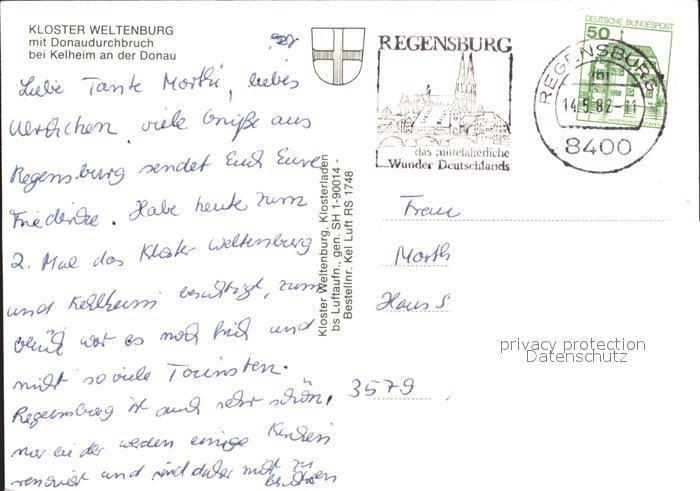 KLOSTER WELTENBURG
mit Donaudurchbruch
bei Kelheim an der Donau
Liebe Tante Marthi, liebes
viele Grüße aus
Regensburg sendet Euch Eure
Friederike. Habe heute zum
2. Mal das Kloster Weltenburg
und Kehlheim besichtigt, zum
Glück war es noch früh und
nicht so viele Touristen.
Regensburg ist auch sehr schön,
nur leider werden einige Kirchen
renoviert und sind daher nicht zu
besichtigen
Kloster Weltenburg, Klosterladen
bs Luftaufn., gen. SH 1-90014 -
Bestellnr. Kel Luft RS 1748
REGENSBURG
das mittelalterliche
Wunder Deutschlands
DEUTSCHE BUNDESPOST
50
REGENSBURG
14.5.82-11
8400
Frau
Marth
Hans S
3579
privacy protection
Datenschutz